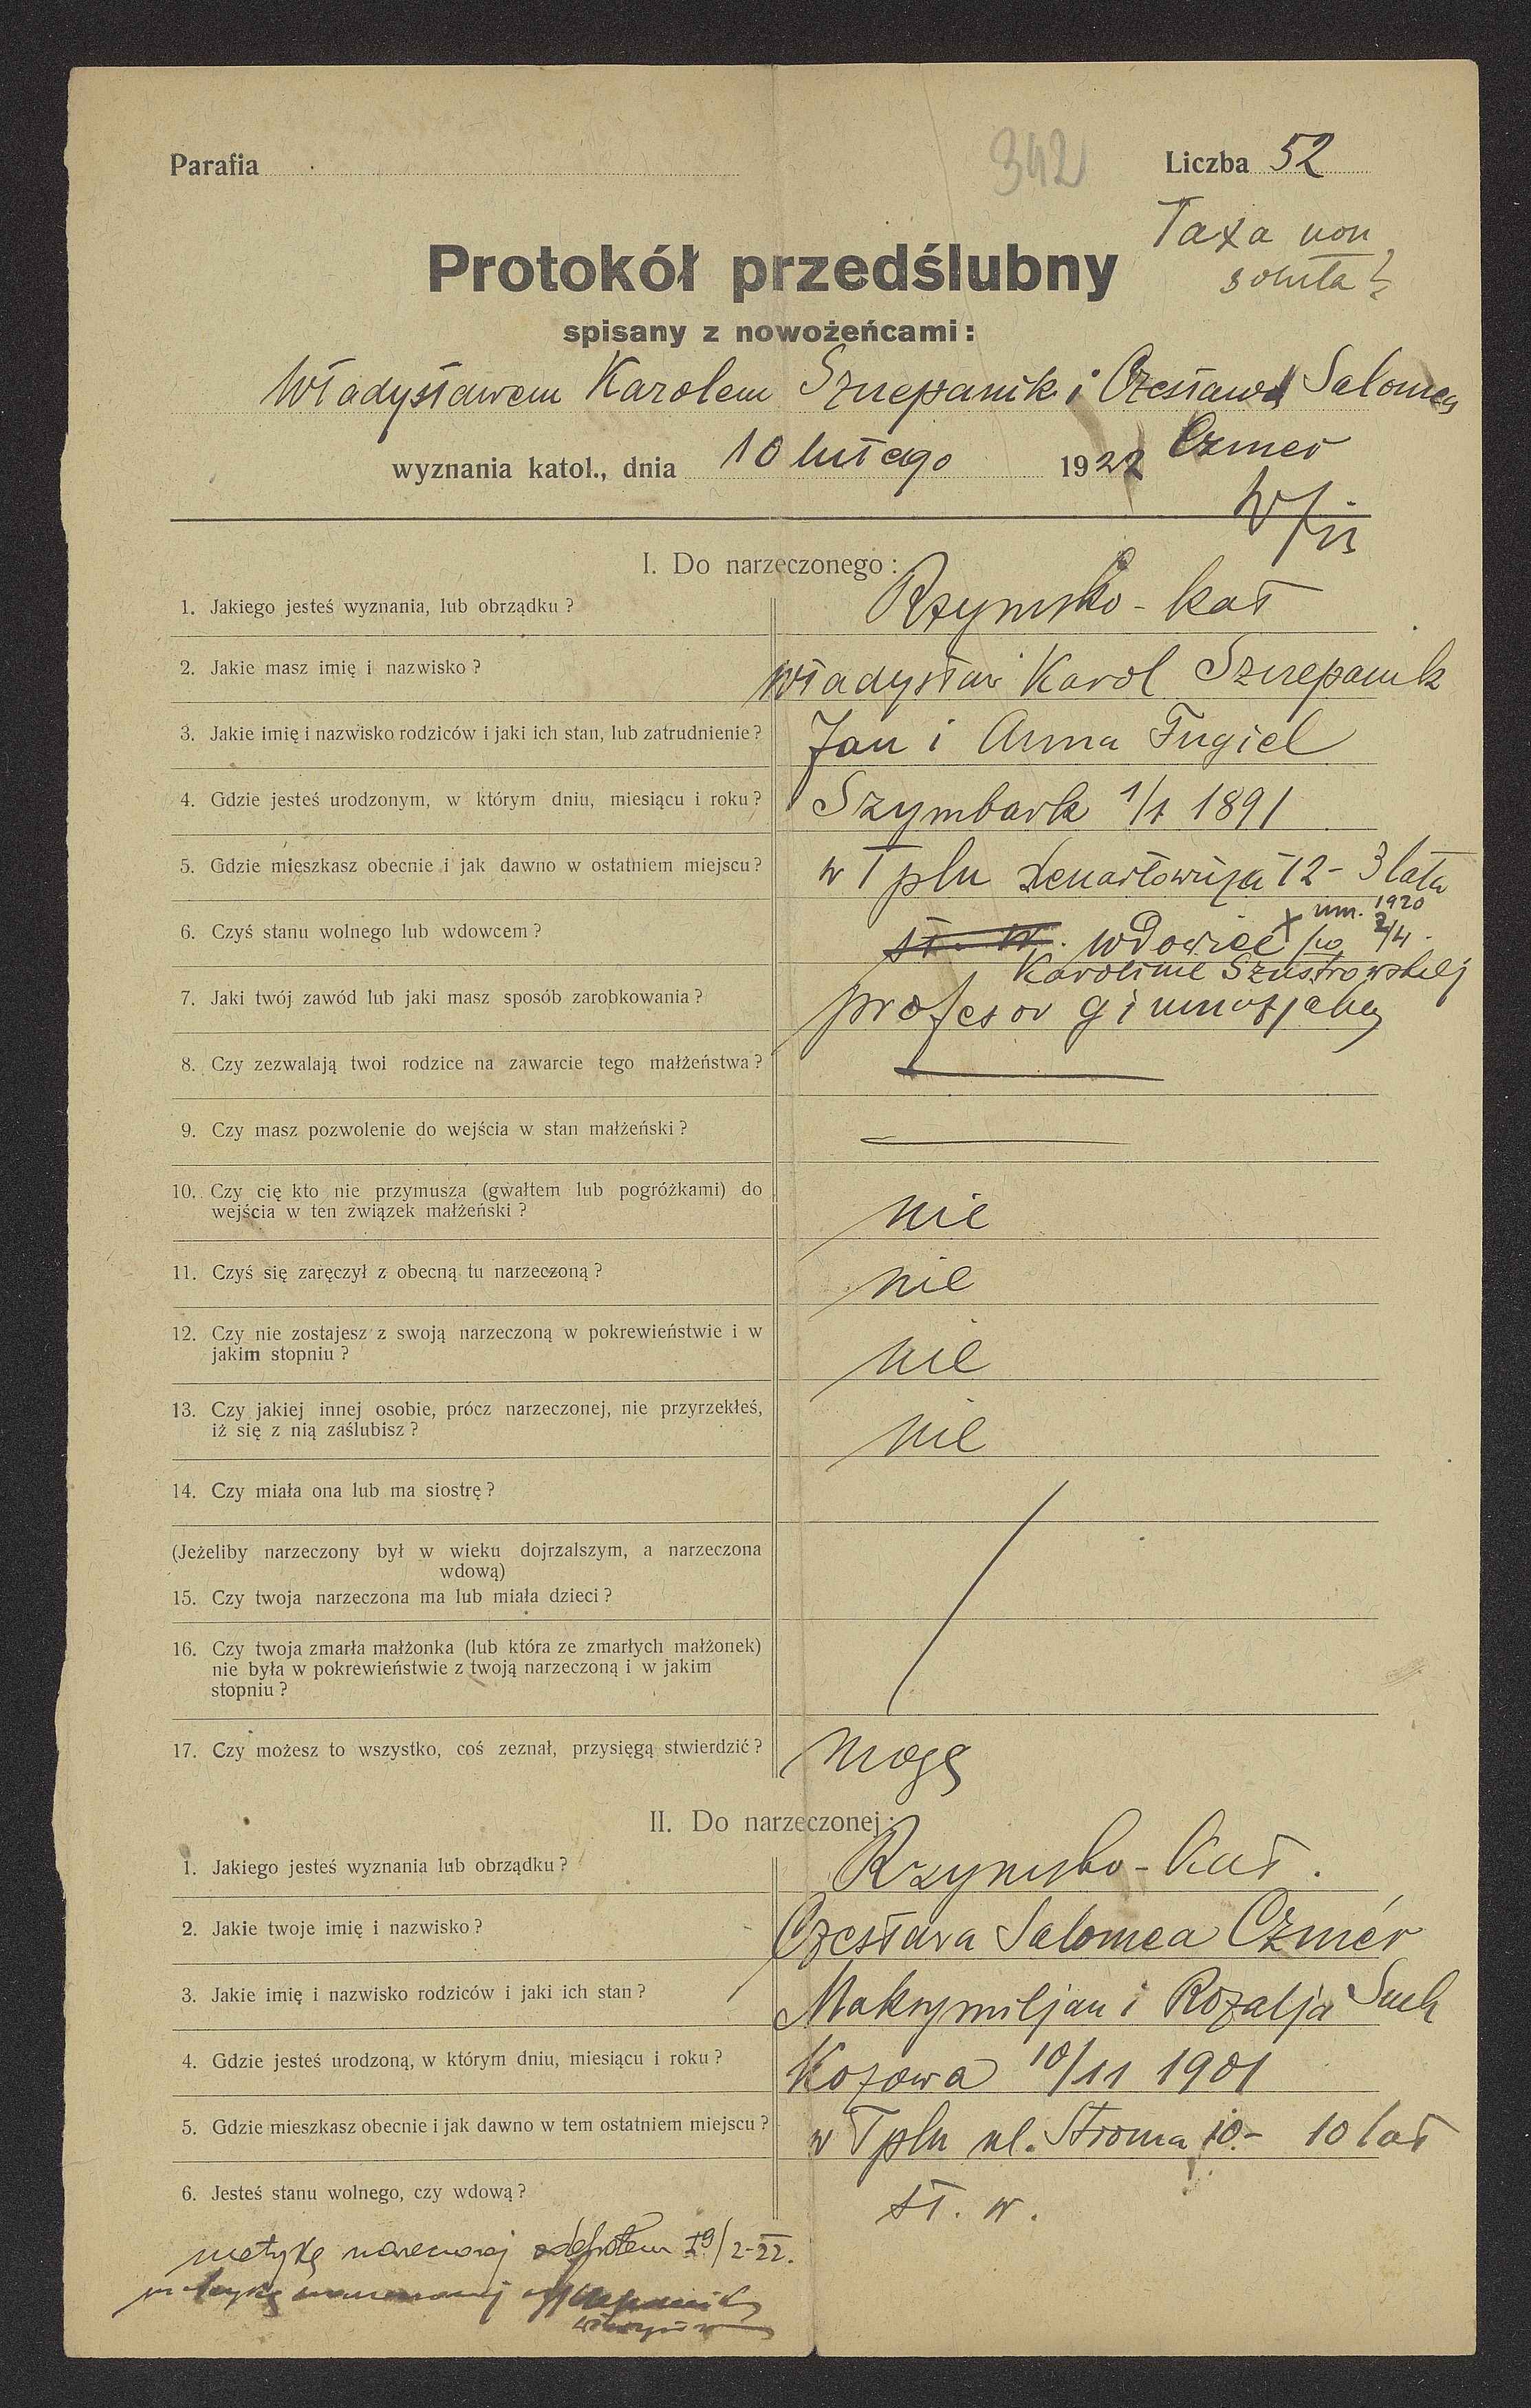 Parafia
342
Liczba 52
Taxa non
soluta
Protokół przedślubny
spisany z nowożeńcami:
Władysławem Karolem Szczepanik i Czesława Salomea
Czmer
wyznania katol., dnia 10 lutego 1922
I. Do narzeczonego:
1. Jakiego jesteś wyznania, lub obrządku? Rzymsko-kat
2. Jakie masz imię i nazwisko? Władysław Karol Szczepanik
3. Jakie imię i nazwisko rodziców i jaki ich stan, lub zatrudnienie? Jan i Anna Fugiel
4. Gdzie jesteś urodzonym, w którym dniu, miesiącu i roku? Szymbark 1/1 1891
5. Gdzie mieszkasz obecnie i jak dawno w ostatniem miejscu? w Tplu Lenartowicza 12 - 3 lata
um. 1920
6. Czyś stanu wolnego lub wdowcem? st. w. wdowiec po 2/4
Karolinie Szustrowskiej
7. Jaki twój zawód lub jaki masz sposób zarobkowania? profesor gimnazjalny
8. Czy zezwalają twoi rodzice na zawarcie tego małżeństwa?
9. Czy masz pozwolenie do wejścia w stan małżeński?
10. Czy cię kto nie przymusza (gwałtem lub pogróżkami) do
wejścia w ten związek małżeński? nie
11. Czyś się zaręczył z obecną tu narzeczoną? nie
12. Czy nie zostajesz z swoją narzeczoną w pokrewieństwie i w
jakim stopniu? nie
13. Czy jakiej innej osobie, prócz narzeczonej, nie przyrzekłeś,
iż się z nią zaślubisz? nie
14. Czy miała ona lub ma siostrę?
(Jeżeliby narzeczony był w wieku dojrzalszym, a narzeczona
wdową)
15. Czy twoja narzeczona ma lub miała dzieci?
16. Czy twoja zmarła małżonka (lub która ze zmarłych małżonek)
nie była w pokrewieństwie z twoją narzeczoną i w jakim
stopniu?
17. Czy możesz to wszystko, coś zeznał, przysięgą stwierdzić? mogę
II. Do narzeczonej:
1. Jakiego jesteś wyznania lub obrządku? Rzymsko-kat.
2. Jakie twoje imię i nazwisko? Czesława Salomea Czmér
3. Jakie imię i nazwisko rodziców i jaki ich stan? Maksymiljan i Rozalja Such
4. Gdzie jesteś urodzoną, w którym dniu, miesiącu i roku? Kozowa 10/11 1901
5. Gdzie mieszkasz obecnie i jak dawno w tem ostatniem miejscu? w Tplu ul. Stroma 10.- 10 lat
6. Jesteś stanu wolnego, czy wdową? st. w.
metykę narzeczonej odebrałem 19/2-22.